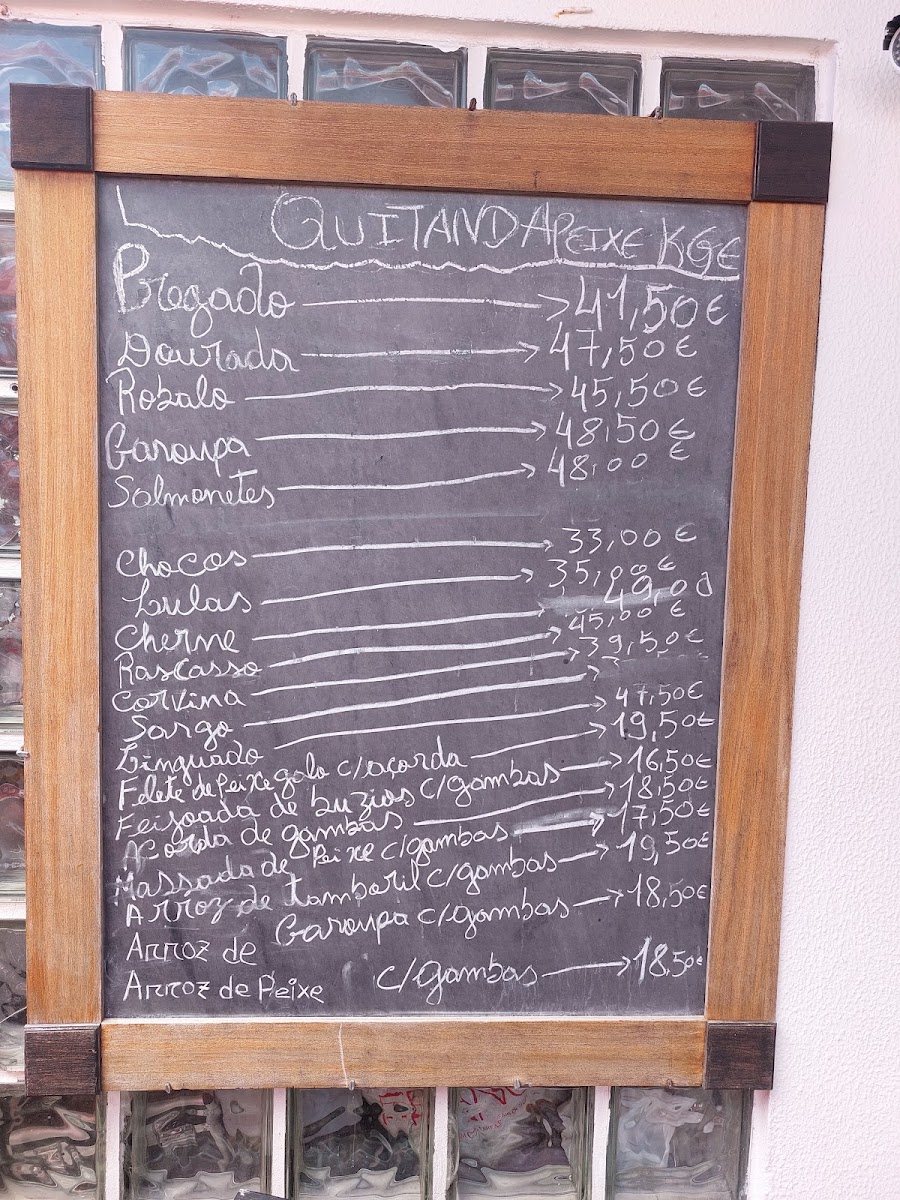 QUITANDA PEIXE KG€
Pregado 41,50€
Dourada 47,50€
Robalo 45,50€
Garoupa 48,50€
Salmonetes 48,00€
Chocos 33,00€
Lulas 35,00€
Cherne 49,00
Rascasso 45,00€
Corvina 39,50€
Sargo
Linguado 47,50€
Felete de Peixe galo c/açorda 19,50€
Feijoada de buzios c/gambas 16,50€
Açorda de gambas 18,50€
Massada de Peixe c/gambas 17,50€
Arroz de tamboril c/gambas 19,50€
Arroz de Garoupa c/gambas 18,50€
Arroz de Peixe c/gambas 18,50€